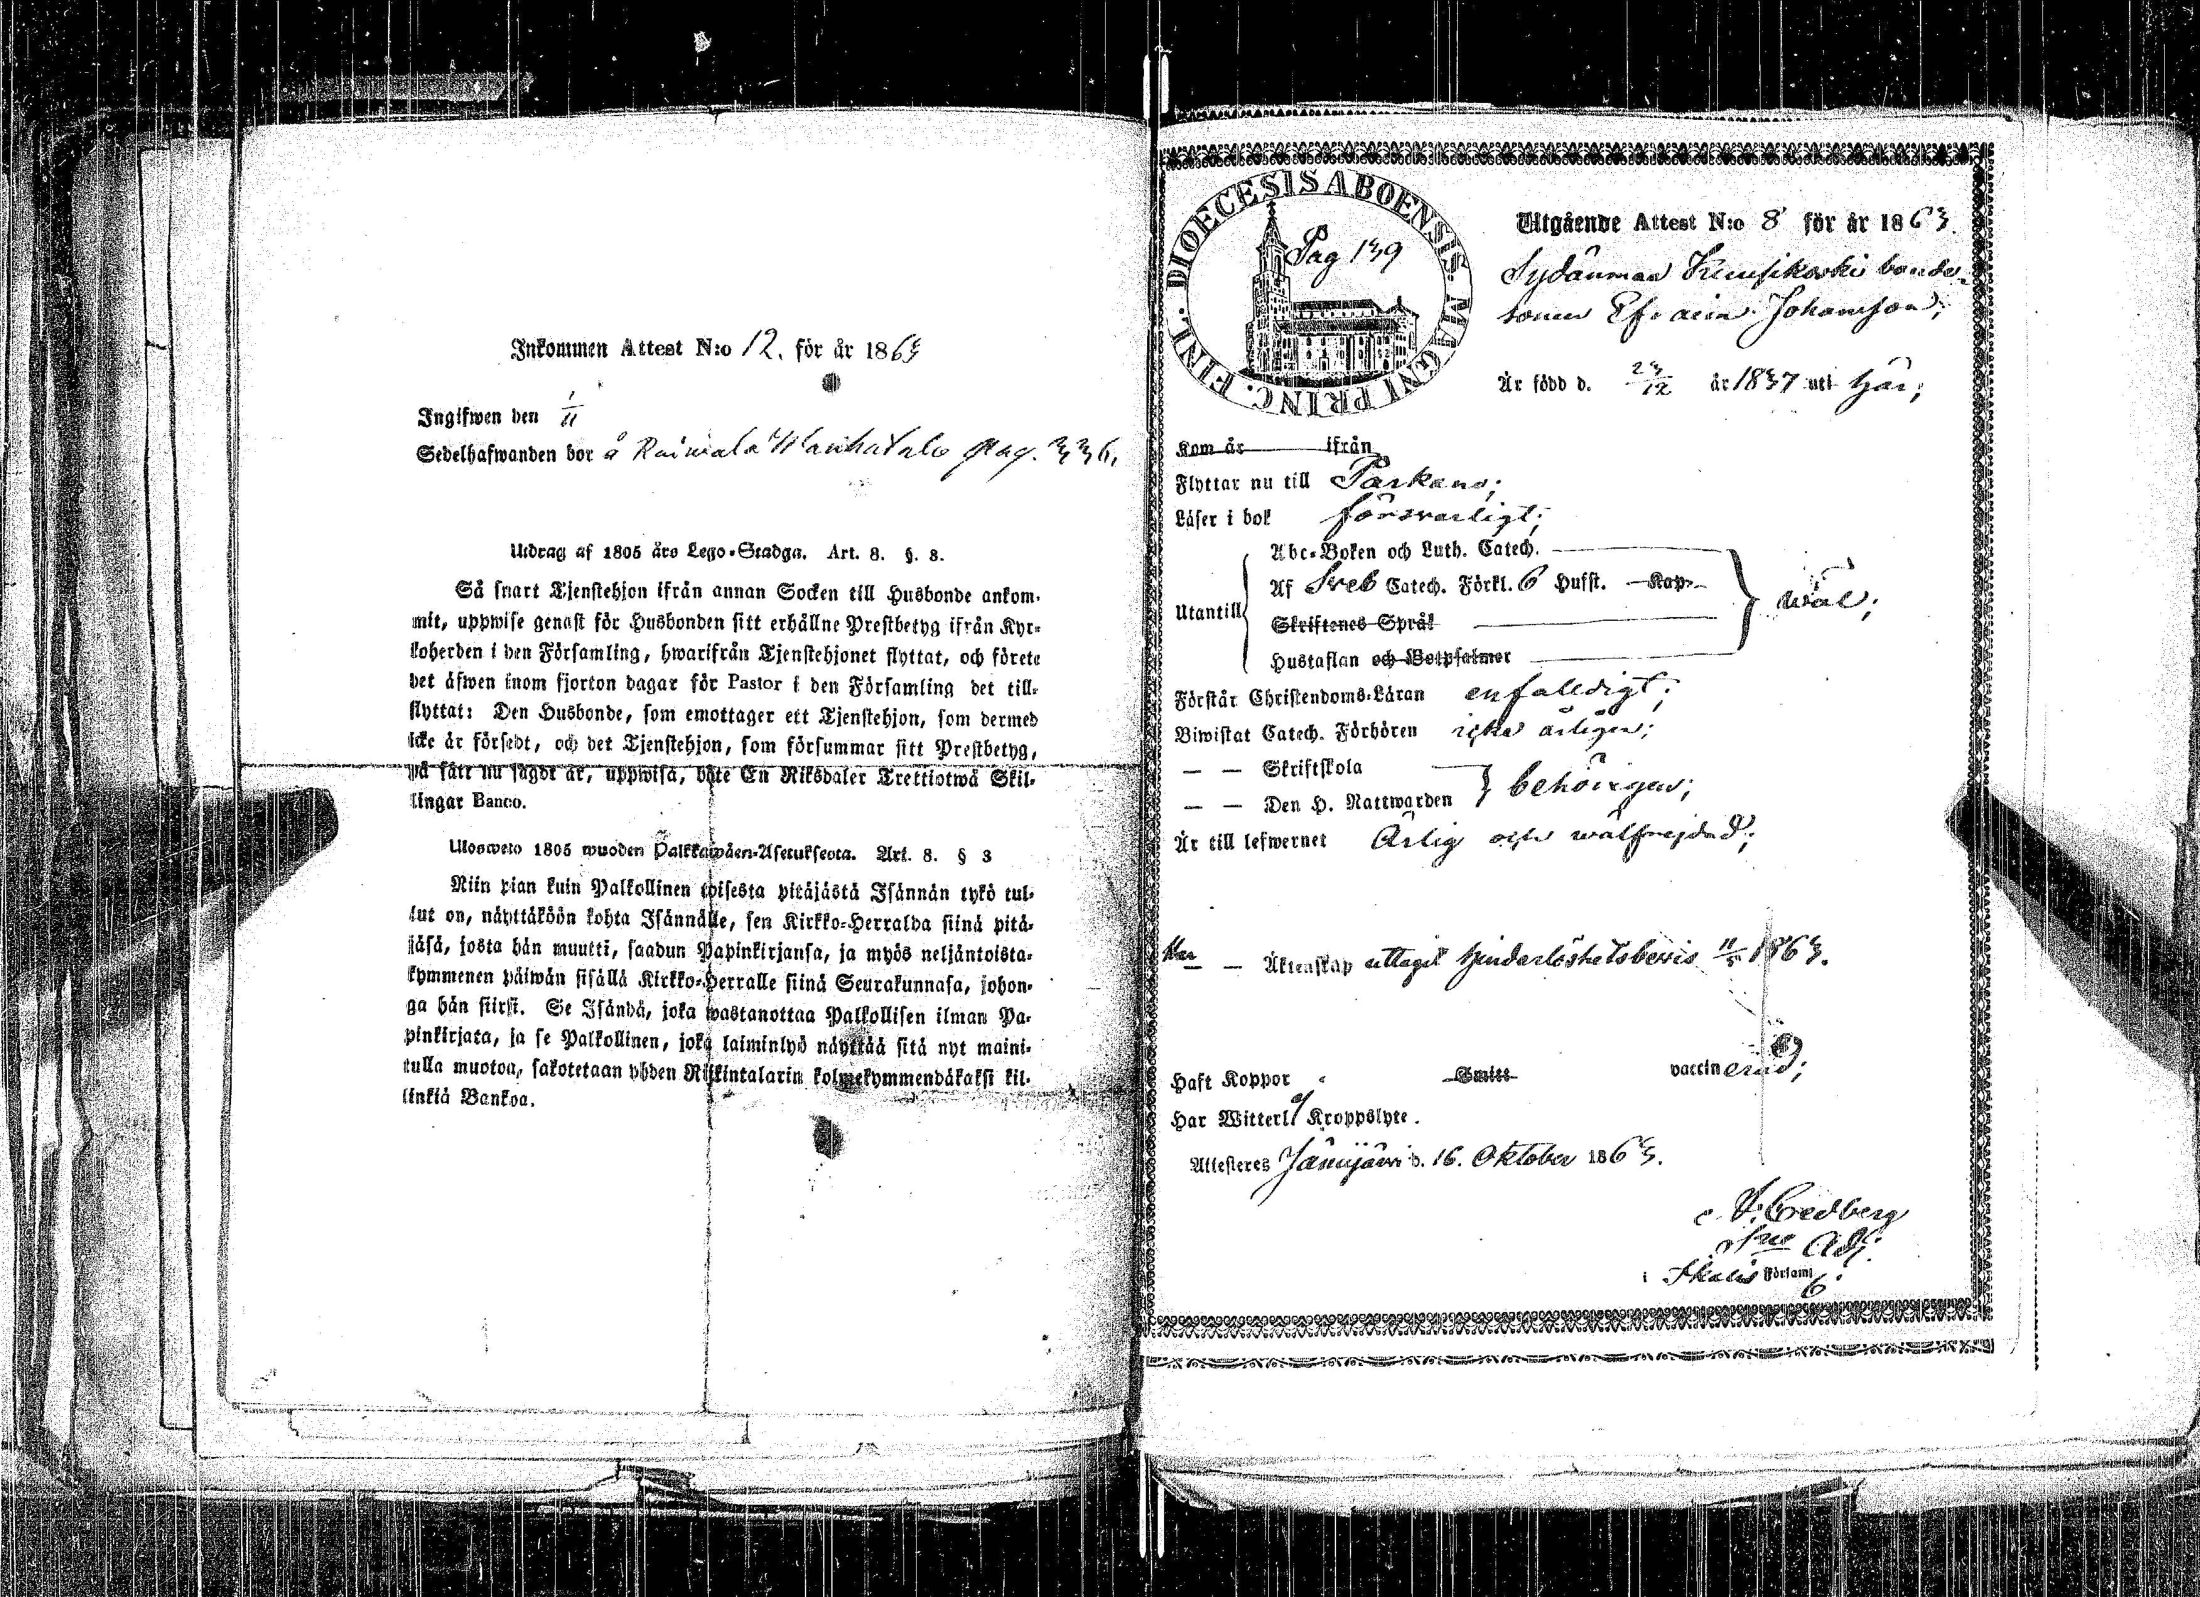 Inkommen Attest N:o 12. för år 1863
Ingifwen den 1/11
Sedelhafwanden bor å Raiwala Wanhatalo pag. 336,
Utdrag af 1805 års Lego-Stadga. Art. 8. §. 8.
Så snart Tjenstehjon ifrån annan Socken till Husbonde ankom-
mit, uppwise genast för Husbonden sitt erhållne Prestbetyg ifrån Kyr-
koherden i den Församling, hwarifrån Tjenstehjonet flyttat, och förete
det äfwen inom fjorton dagar för Pastor i den Församling det till-
flyttat: Den Husbonde, som emottager ett Tjenstehjon, som dermed
icke är försedt, och det Tjenstehjon, som försummar sitt Prestbetyg,
på sätt nu sagdt är, uppwisa, böte En Riksdaler Trettiotwå Skil-
lingar Banco.
Ulosweto 1805 wuoden Palkkawäen-Asetuksesta. Art. 8. § 3
Niin pian kuin Palkollinen toisesta pitäjästä Isännän tykö tul-
lut on, näyttäköön kohta Isännälle, sen Kirkko-Herralda siinä pitä-
jäsä, josta hän muutti, saadun Papinkirjansa, ja myös neljäntoista-
kymmenen päiwän sisällä Kirkko-Herralle siinä Seurakunnasa, johon-
ga hän siirsi. Se Isändä, joka wastanottaa Palkollisen ilman Pa-
pinkirjata, ja se Palkollinen, joka laiminlyö näyttää sitä nyt maini-
tulla muotoa, sakotetaan yhden Riikintalarin kolmekymmendäkaksi kil-
linkiä Bankoa.
DIOECESIS ABOENSIS. MAGNI PRINC. FINL.
Pag 139
Utgående Attest N:o 8 för år 1863.
Sydänmaa bonde-
sonen Efraim Johansson;
Är född d. 23/12 år 1837 uti här;
Kom år ifrån
Flyttar nu till Parkano;
Läser i bok försvarligt;
Utantill
Abc-Boken och Luth. Catech.
Af Sveb Catech. Förkl. 6 Hufst. Kap.
Skriftenes Språk
Hustaflan och Botpsalmer
wäl;
Förstår Christendoms-Läran enfaldigt;
Biwistat Catech. Förhören icke årligen;
— — Skriftskola
— — Den H. Nattwarden
behörigen;
Är till lefwernet Ärlig och wälfrejdad;
Har — Äktenskap uttagit hinderlöshetsbevis 11/5 1863.
Haft Koppor Smitt vaccinerad;
Har Witterl. Kroppslyte.
Attesteres Jämijärvi d. 16. Oktober 1863.
Credberg
Adj.
i Ikalis Församl: